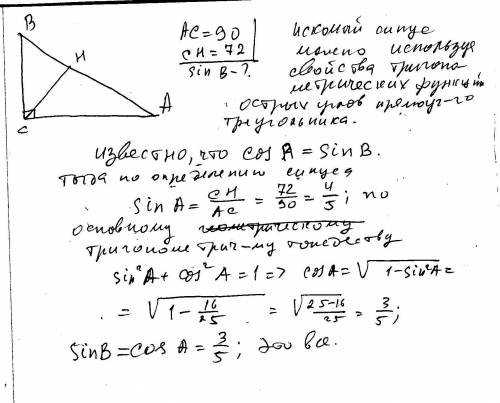 B
H
A
C
AC=90
CH=72
sin B-?
Искомый синус
можно используя
свойства тригоно
метрических функций
острых углов прямоуг-го
треугольника.
Известно, что cos A = sin B.
тогда по определению синуса
sin A = CH/AC = 72/90 = 4/5; по
основному геометрическому
тригонометрич-му тождеству
sin²A + cos²A = 1 => cos A = √1-sin²A =
= √1 - 16/25 = √25-16/25 = 3/5;
sin B = cos A = 3/5; это все.